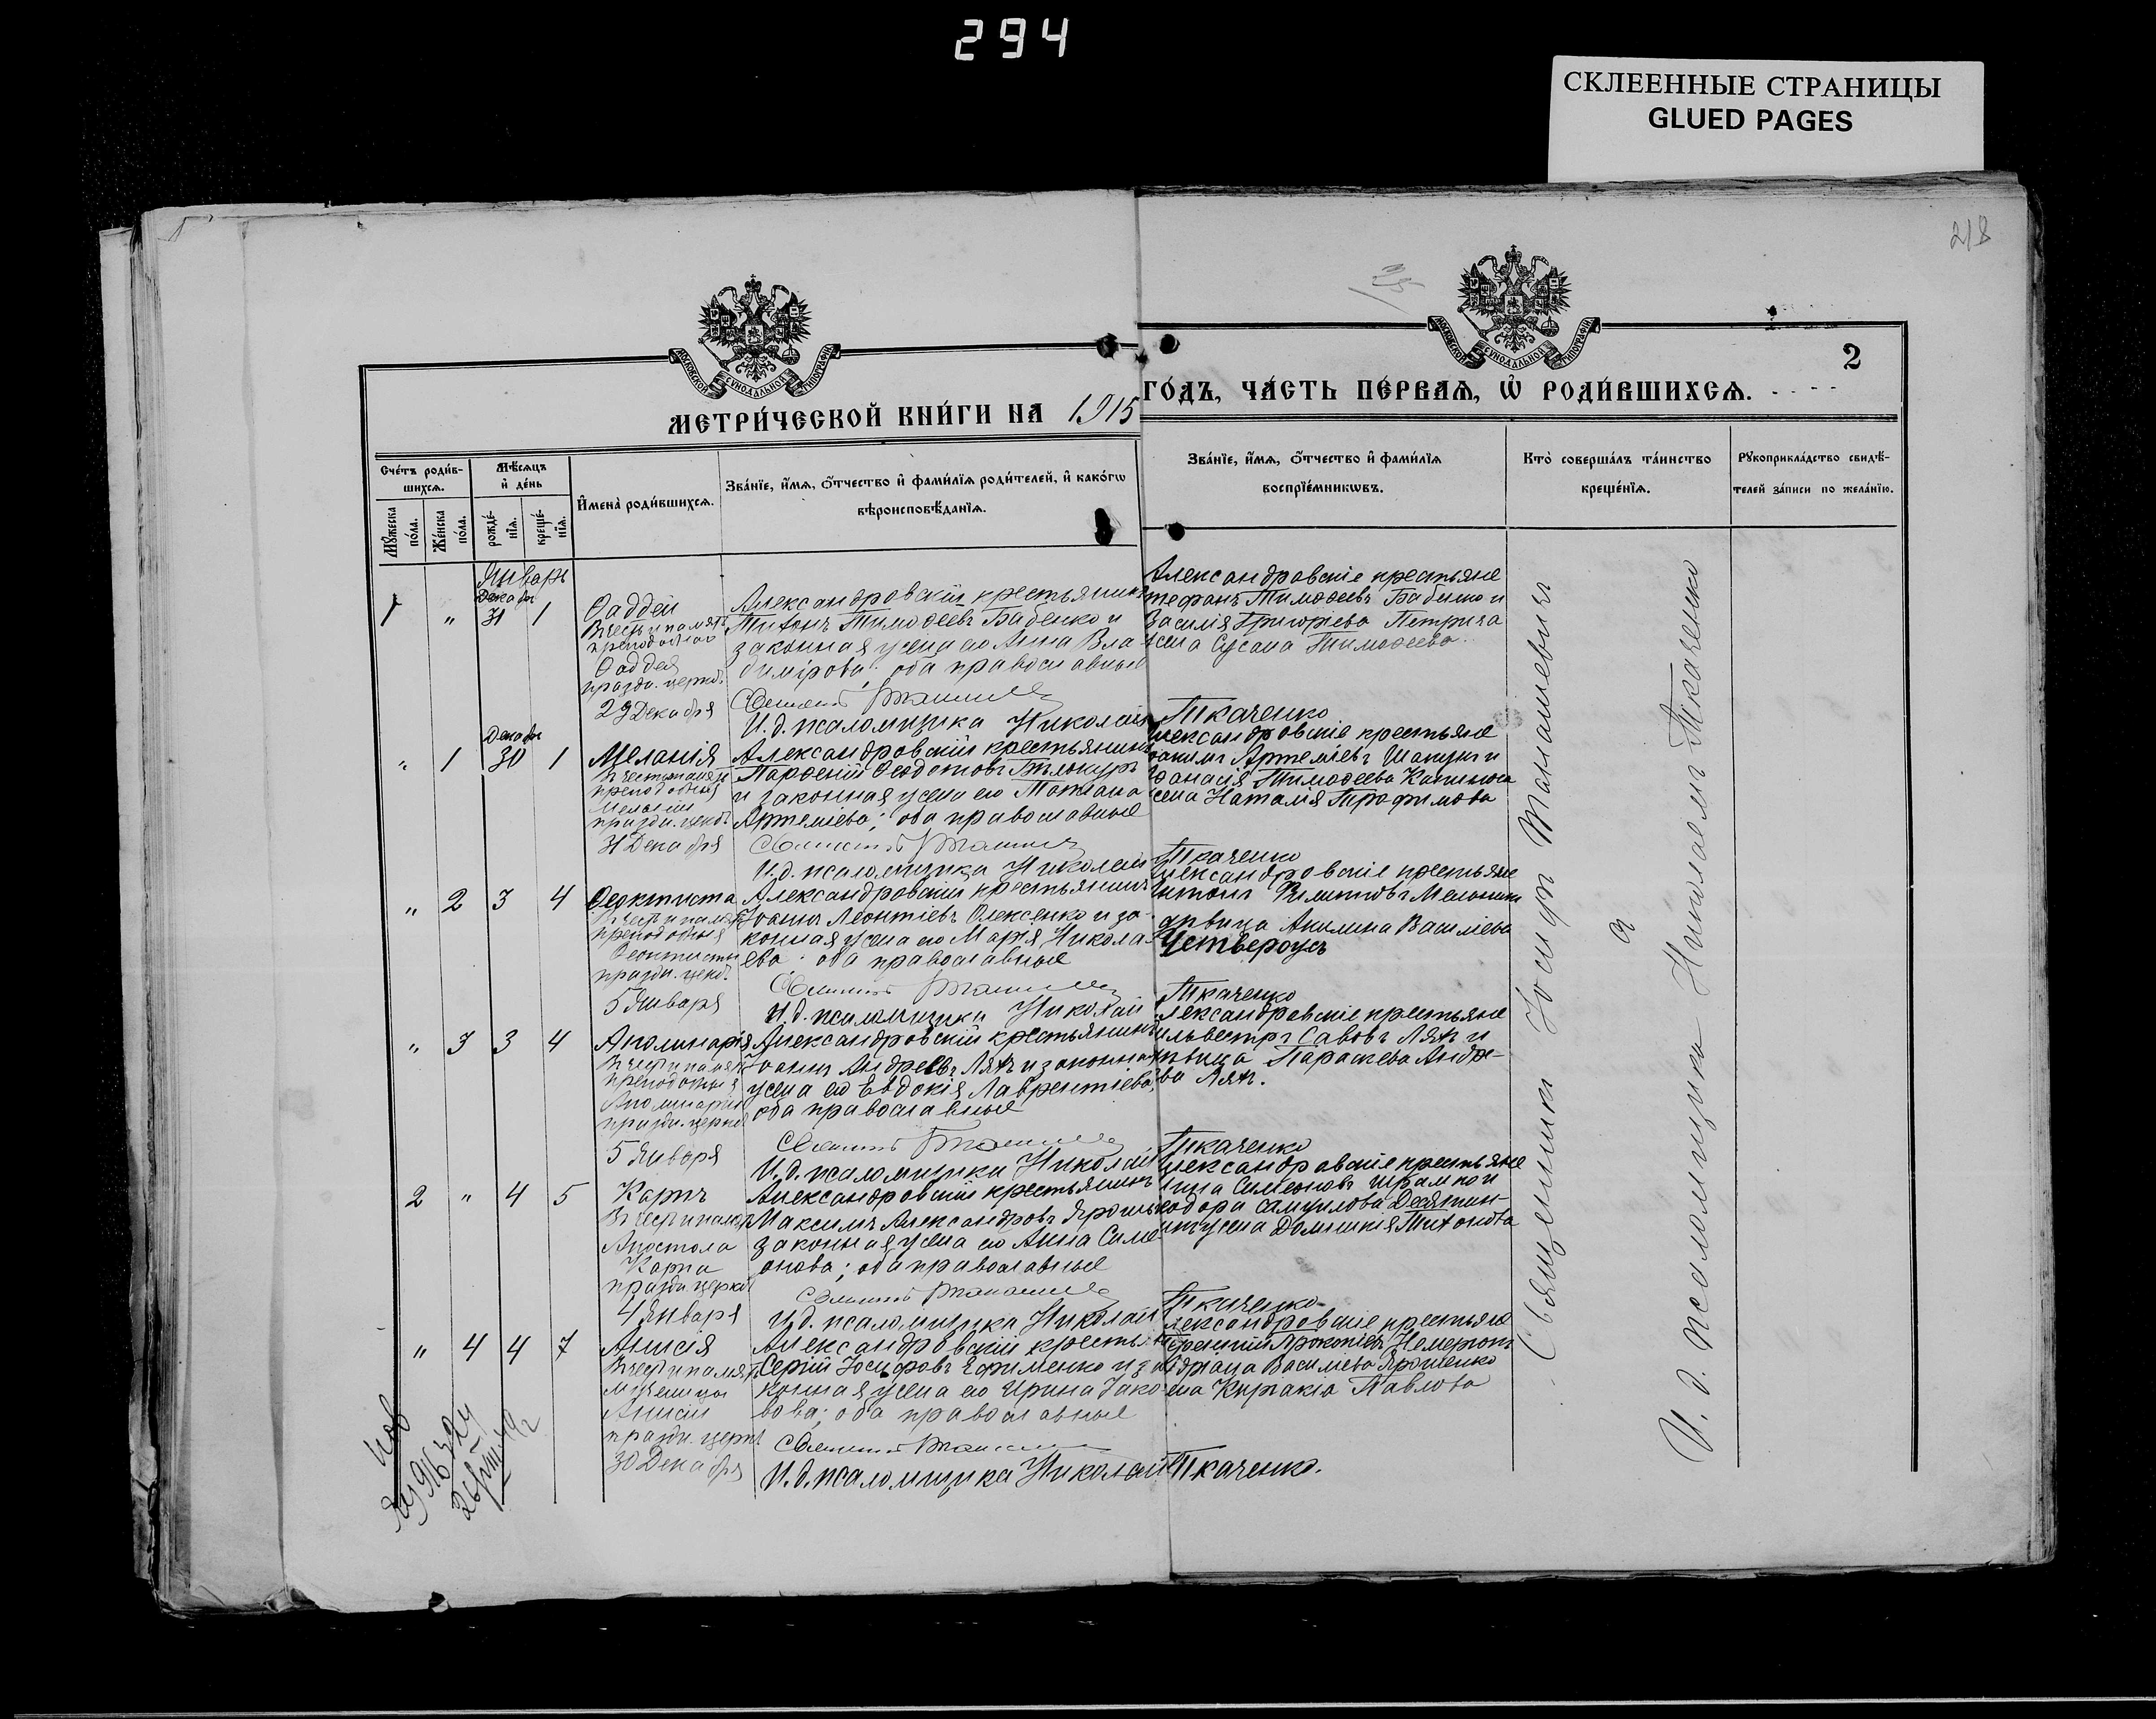 294
СКЛЕЕННЫЕ СТРАНИЦЫ
GLUED PAGES
218
МОСКОВСКОЙ СѴНОДАЛЬНОЙ ТИПОГРАФІИ
МОСКОВСКОЙ СѴНОДАЛЬНОЙ ТИПОГРАФІИ
2
МЕТРИ́ЧЕСКОЙ КНИ́ГИ НА 1915 ГО́ДЪ, ЧА́СТЬ ПЕ́РВАѦ, Ѡ҆ РОДИ́ВШИХСѦ.
Сче́тъ роди́вшихсѧ.
Мꙋ́жеска по́ла.
Же́нска по́ла.
Мѣ́сѧцъ и҆ де́нь
рожде́нїѧ.
креще́нїѧ.
И҆мена̀ роди́вшихсѧ.
Зва́нїе, и҆́мѧ, ѻ҆́тчество и҆ фами́лїѧ роди́телей, и҆ како́гѡ вѣроисповѣ́данїѧ.
Зва́нїе, и҆́мѧ, ѻ҆́тчество и҆ фами́лїѧ воспрїе́мникѡвъ.
Кто̀ соверша́лъ та́инство креще́нїѧ.
Рꙋкоприкла́дство свидѣ́телей за́писи по жела́нїю.
Январь
Декабрь
1 " 31 1
Ѳаддей
Въ честь и память
преподобнаго
Ѳаддея
праздн. церков.
29 Декабря
Александровскій крестьянинъ
Титонъ Тимоѳеевъ Бабенко и
законная жена его Анна Вла-
димірова; оба православные
И. д. псаломщика Николай Ткаченко
Александровскіе крестьяне
Стефанъ Тимоѳеевъ Бабенко и
Василія Григорьева Петрича
жена Сусана Тимоѳеева.
Декабрь
" 1 30 1
Меланія
Въ честь и память
преподобныя
Меланіи
праздн. церков.
31 Декабря
Александровскій крестьянинъ
Парѳеній Ѳеодотовъ Бѣлокуръ
и законная жена его Татіана
Артеміева; оба православные
И. д. псаломщика Николай Ткаченко
Александровскіе крестьяне
Артеміевъ Шапунъ и
Аѳанасія Тимоѳеева
жена Наталія Трофимова
" 2 3 4
Ѳеоктиста
Въ честь и память
преподобныя
Ѳеоктисты
праздн. церков.
5 Января
Александровскій крестьянинъ
Іоаннъ Леонтіевъ Олексенко и за-
конная жена его Марія Никола-
ева; оба православные
И. д. псаломщика Николай Ткаченко
Александровскіе крестьяне
Антонъ Филиповъ Мельникъ
дѣвица Акилина Васильева
Четвероусъ
" 3 3 4
Аполинарія
Въ честь и память
преподобныя
Аполинаріи
праздн. церков.
5 Января
Александровскій крестьянинъ
Іоаннъ Андреевъ Ляхъ и законная
жена его Евдокія Лаврентіева;
оба православные
И. д. псаломщика Николай Ткаченко
Александровскіе крестьяне
Сильвестръ Савовъ Ляхъ и
дѣвица Параскева Андре-
ва Ляхъ.
2 " 4 5
Карпъ
Въ честь и память
Апостола
Карпа
праздн. церков.
4 Января
Александровскій крестьянинъ
Максимъ Александровъ Ярошъ
законная жена его Анна Симе-
онова; оба православные
И. д. псаломщика Николай Ткаченко
Александровскіе крестьяне
Симеоновъ и
Самуилова Десятин-
жена Домникія Титонова
" 4 4 7
Анисія
Въ честь и память
мученицы
Анисіи
праздн. церков.
30 Декабря
Александровскій крестьян
Сергій Іосифовъ Ефименко и за-
конная жена его Ирина Іако-
вова; оба православные
И. д. псаломщика Николай Ткаченко.
Александровскіе крестьяне
Терентій Прокопіевъ и
Василіева Ярошенко
жена Киріакія Павлова
Священникъ Іосифъ Танашевичъ
и
И. д. псаломщика Николай Ткаченко